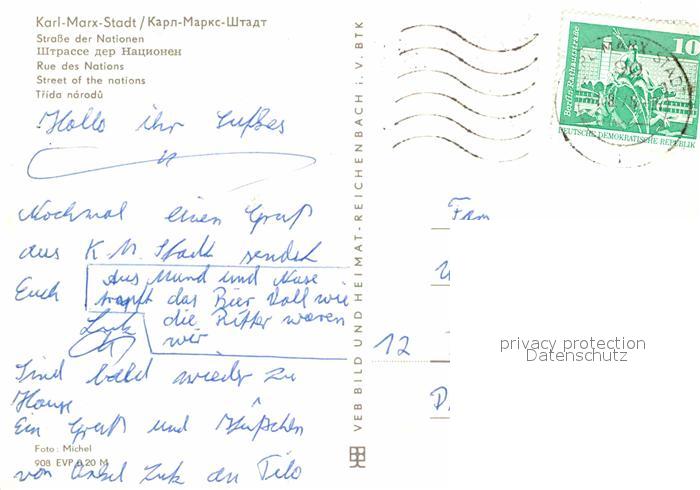 Karl-Marx-Stadt / Карл-Маркс-Штадт
Straße der Nationen
Штрассе дер Национен
Rue des Nations
Street of the nations
Třída národů
Hallo ihr
Nochmal einen Gruß
aus K. M. Stadt sendet
Euch
Aus Mund und Nase
tropft das Bier Voll wie
die Ritter waren
wir
Sind bald wieder zu
Hause
Ein Gruß und
von Onkel an Tilo
Foto: Michel
908 EVP 0,20 M
VEB BILD UND HEIMAT · REICHENBACH i. V. BTK
10
Berlin Rathausstraße
DEUTSCHE DEMOKRATISCHE REPUBLIK
Fam
12
D.
privacy protection
Datenschutz